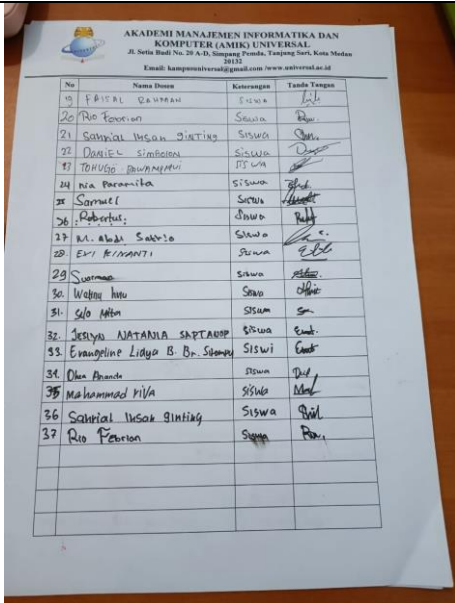 AKADEMI MANAJEMEN INFORMATIKA DAN
KOMPUTER (AMIK) UNIVERSAL
Jl. Setia Budi No. 20 A-D, Simpang Pemda, Tanjung Sari, Kota Medan
20132
Email: kampusuniversal@gmail.com /www.universal.ac.id
No Nama Dosen Keterangan Tanda Tangan
19 FAISAL RAHMAN Siswa
20 Rio Febrion Siswa
21 Sahrial Ihsan Ginting Siswa
22 DANIEL Simbolon Siswa
23 TOHUGO Siswa
24 nia Paramita Siswa
25 Samuel Siswa
26 Robertus Siswa
27 M. Abdi Siswa
28. EVI Siswa
29 Siswa
30. Siswa
31. Siswa
32. JESLYN NATANIA Siswa
33. Evangeline Lidya B. Br. Siswi
34. Dhea Ananda Siswa
35 Mohammad Siswa
36 Sahrial Ihsan Ginting Siswa
37 Rio Febrion Siswa